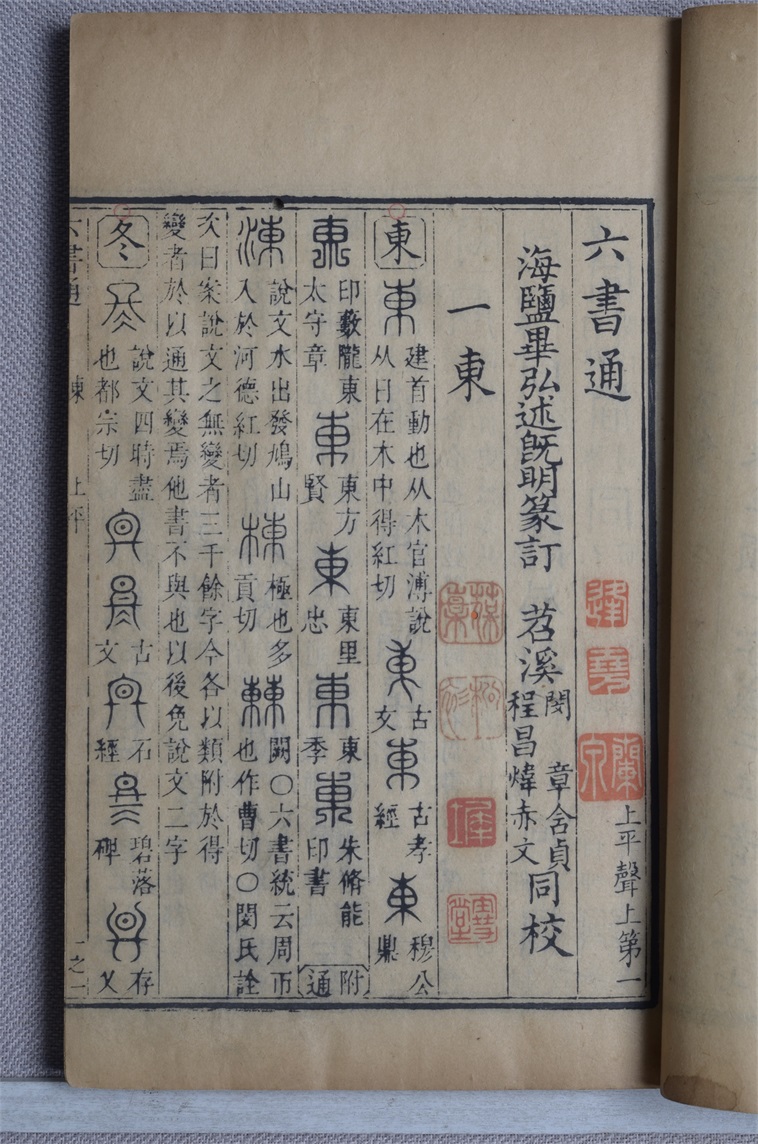 六書通 上平聲上第一
海鹽畢弘述旣明篆訂 苕溪 閔章含貞 程昌煒赤文 同校
一東
東 建首動也从木官溥說从日在木中得紅切 古文 古孝經 穆公鼎
印藪隴東太守章 東方賢 東里忠 東季 朱脩能印書 附通
涷 說文水出發鳩山入於河德紅切 棟 極也多貢切 闕○六書統云周帀也作曹切○閔氏詮
次曰案說文之無變者三千餘字今各以類附於得
變者於以通其變焉他書不與也以後免說文二字
冬 說文四時盡也都宗切 古文 石經 碧落碑 存乂
六書通 東 上平 一之一